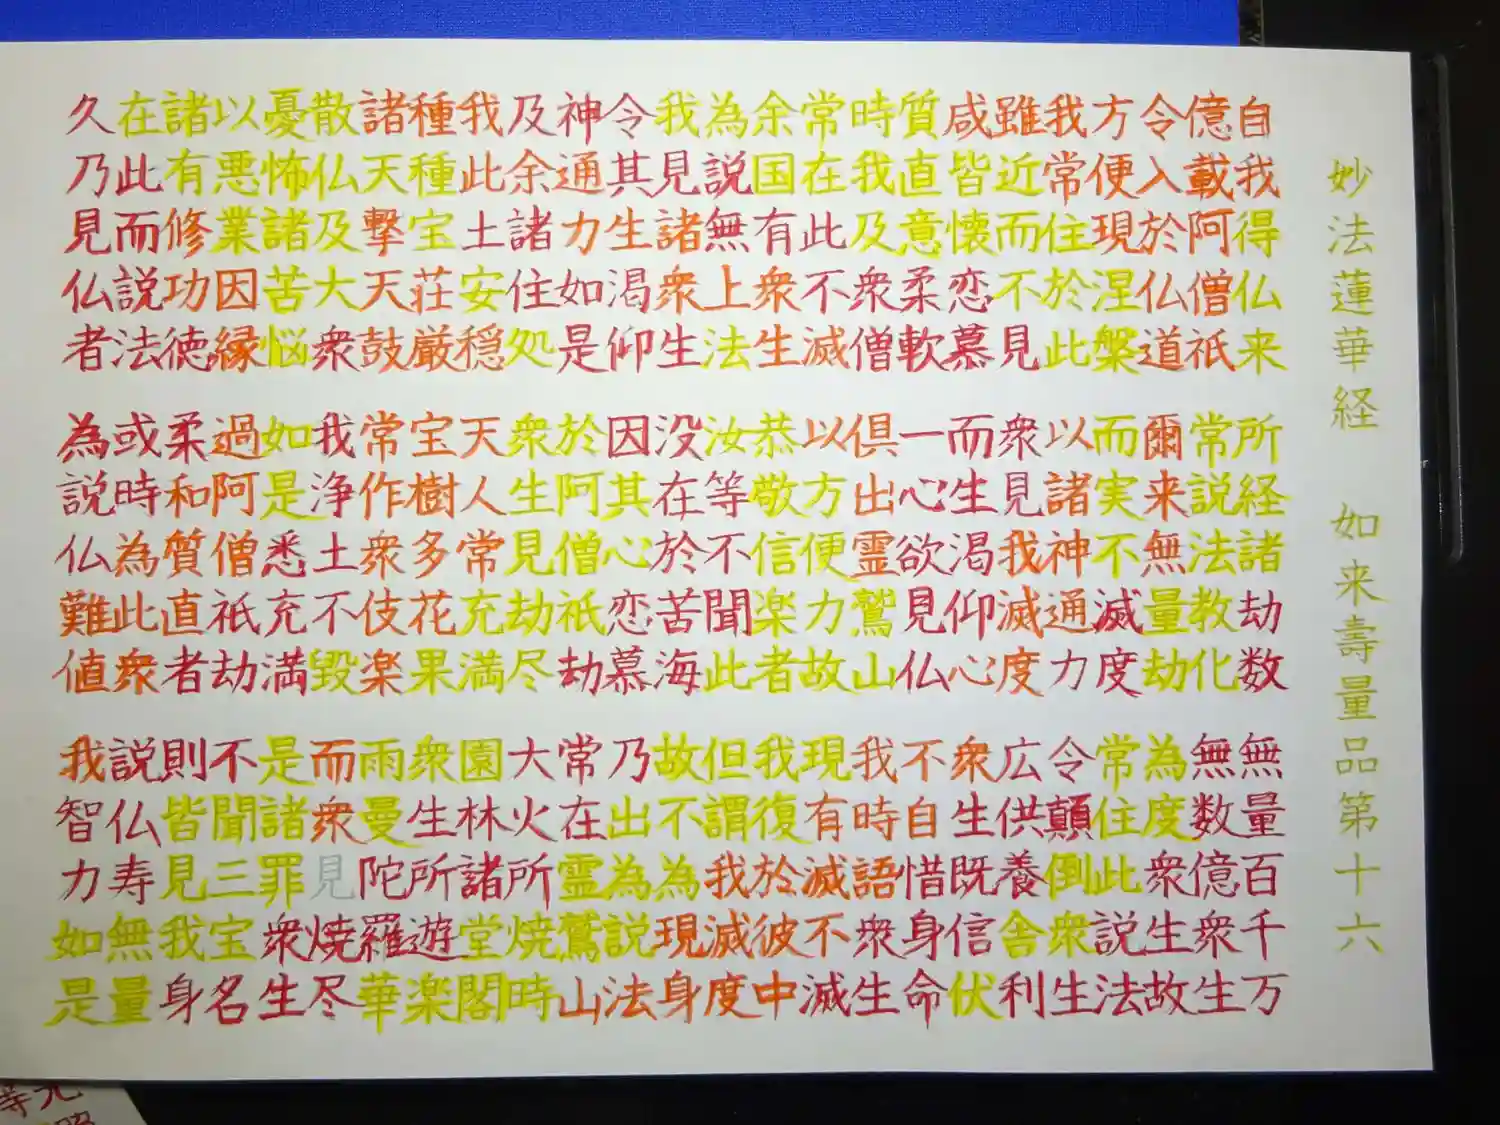 妙法蓮華経 如来壽量品第十六
自我得仏来 所経諸劫数 無量百千万
億載阿僧祇 常説法教化 無数億衆生
令入於仏道 爾来無量劫 為度衆生故
方便現涅槃 而実不滅度 常住此説法
我常住於此 以諸神通力 令顛倒衆生
雖近而不見 衆見我滅度 広供養舎利
咸皆懐恋慕 而生渇仰心 衆生既信伏
質直意柔軟 一心欲見仏 不自惜身命
時我及衆僧 倶出霊鷲山 我時語衆生
常在此不滅 以方便力故 現有滅不滅
余国有衆生 恭敬信楽者 我復於彼中
為説無上法 汝等不聞此 但謂我滅度
我見諸衆生 没在於苦海 故不為現身
令其生渇仰 因其心恋慕 乃出為説法
神通力如是 於阿僧祇劫 常在霊鷲山
及余諸住処 衆生見劫尽 大火所焼時
我此土安穏 天人常充満 園林諸堂閣
種種宝荘厳 宝樹多花果 衆生所遊楽
諸天擊天鼓 常作衆伎楽 雨曼陀羅華
散仏及大衆 我浄土不毀 而衆見焼尽
憂怖諸苦悩 如是悉充満 是諸罪衆生
以悪業因縁 過阿僧祇劫 不聞三宝名
諸有修功徳 柔和質直者 則皆見我身
在此而説法 或時為此衆 説仏寿無量
久乃見仏者 為説仏難値 我智力如是